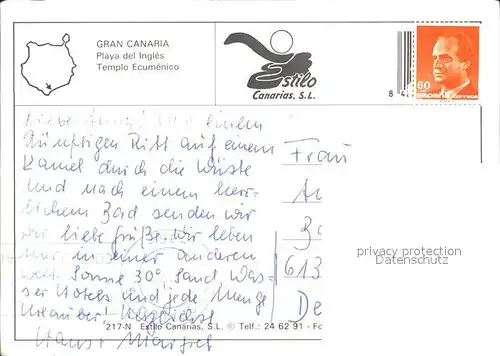 GRAN CANARIA
Playa del Inglés
Templo Ecuménico
Estilo
Canarias, S.L.
60
ESPAÑA CORREOS
8 42
Liebe
einem
zünftigen Ritt auf einem
Kamel durch die Wüste
und nach einem herr-
lichem Bad senden wir
dir liebe Grüße. Wir leben
hier in einer anderen
Welt. Sonne 30°, Sand, Was-
ser Hotels und jede Menge
Urlauber! Herzlichst
Hans + Margret
Frau
613
De
privacy protection
Datenschutz
217-N Estilo Canarias, S.L. © Telf.: 24 62 91 - Fo